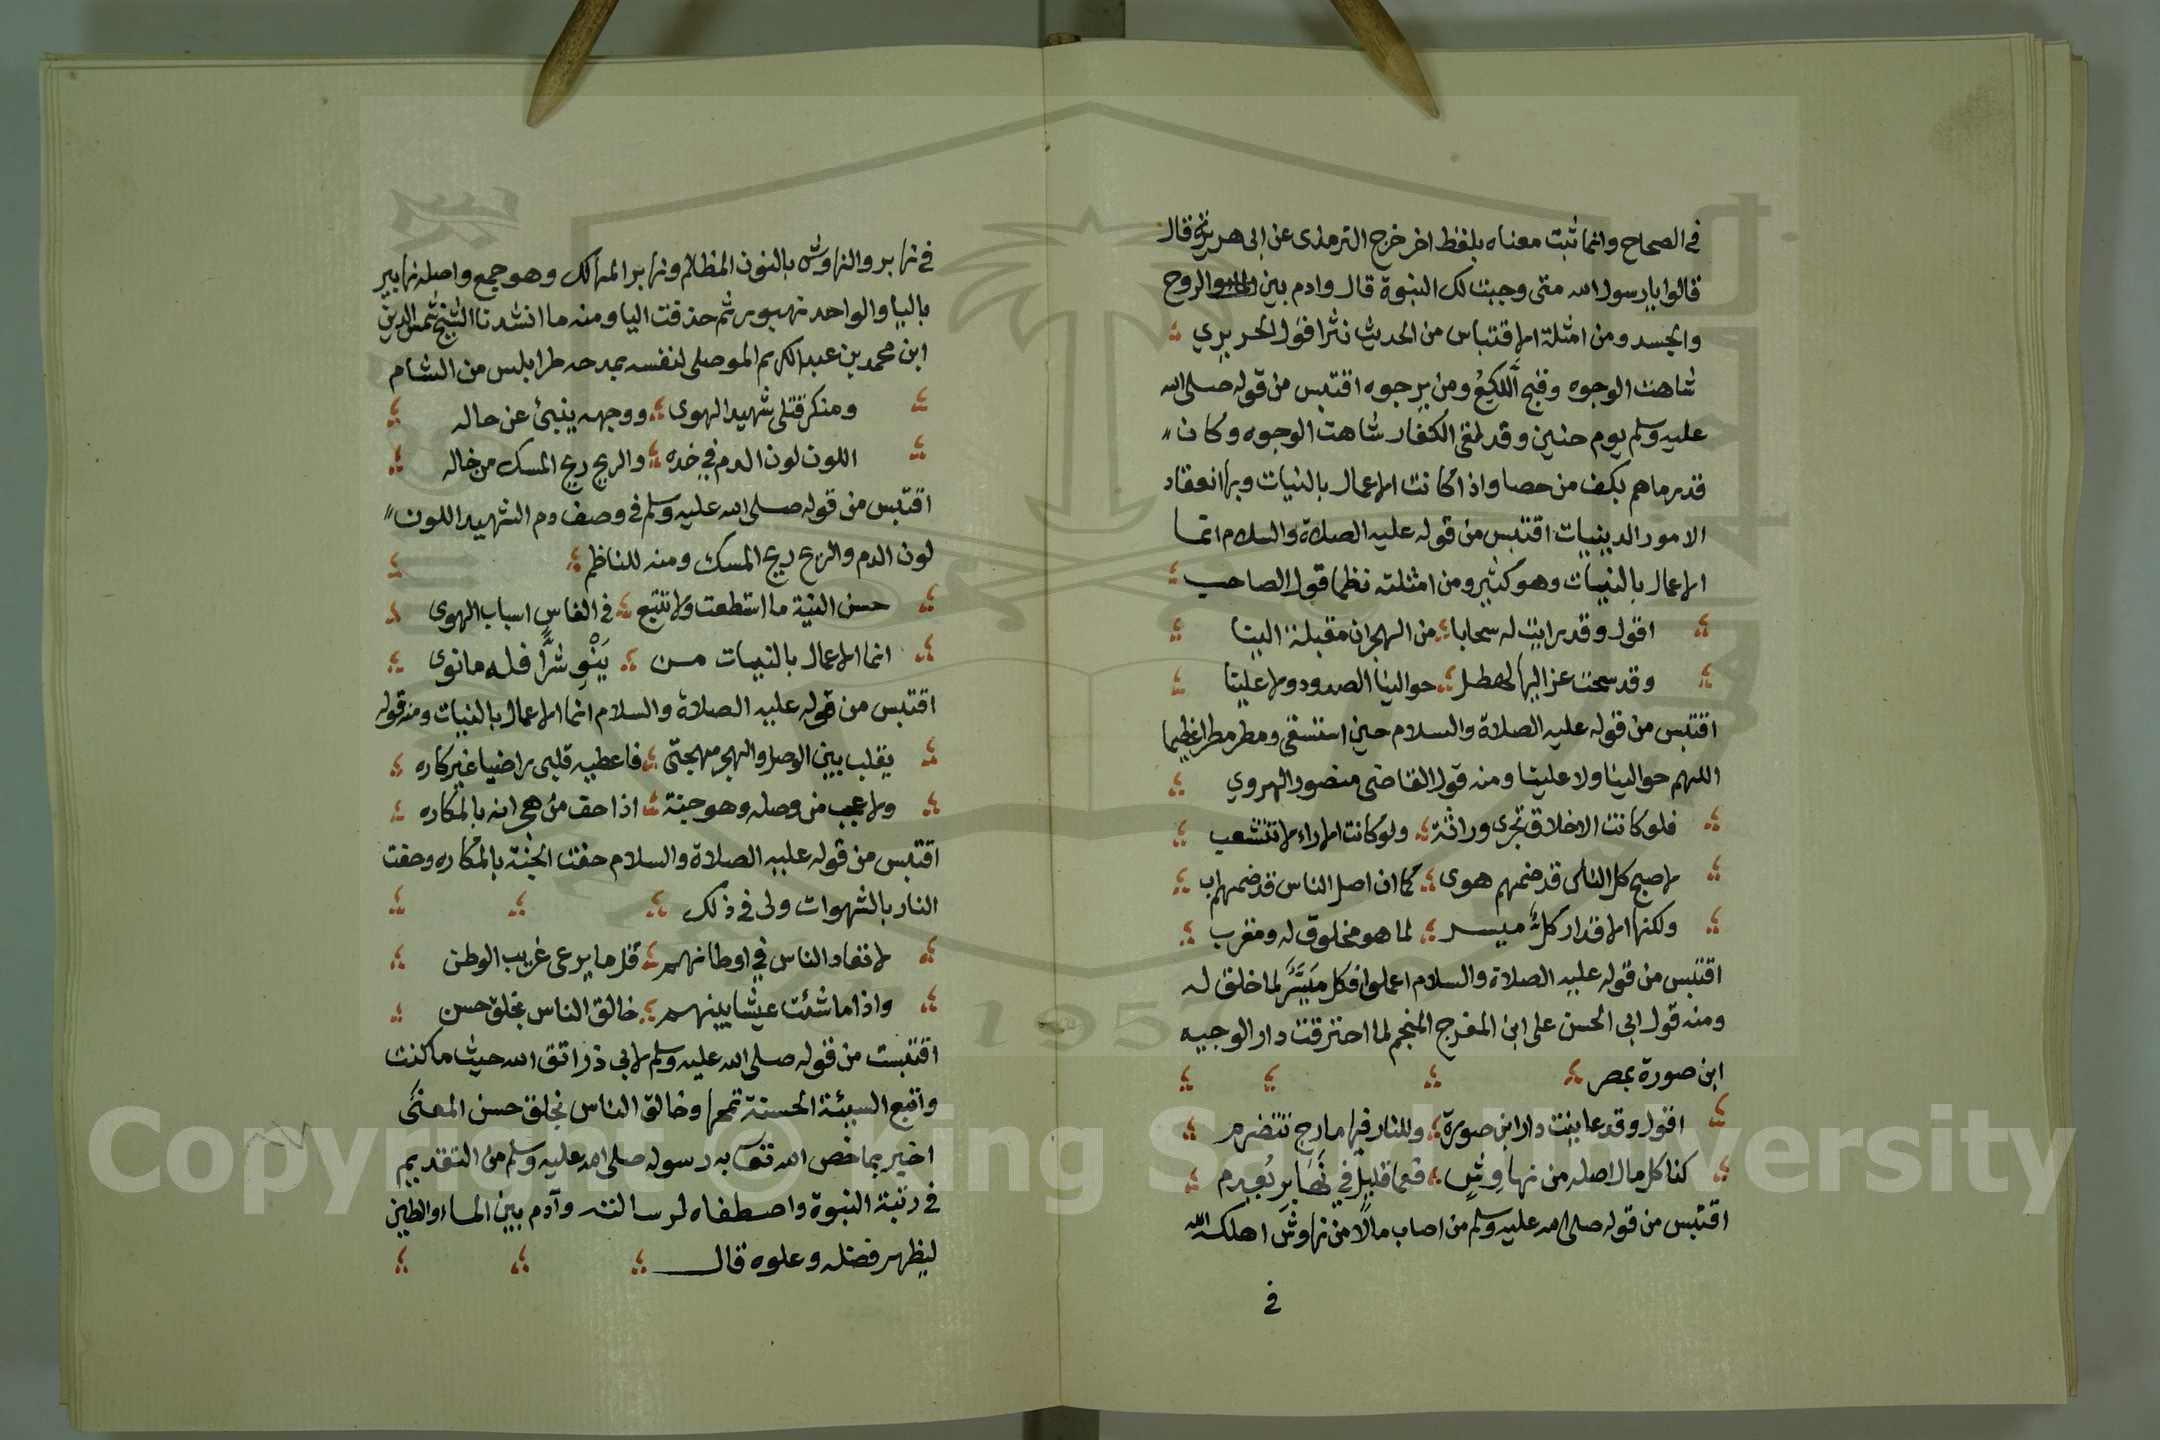 في الصحاح وانما ثبت معناه بلفظ اخر خرج الترمذى عن ابى هريرة قال
قالوا يا رسول الله متى وجبت لك النبوة قال وادم بين الروح
والجسد ومن امثلة الاقتباس من الحديث نثرا قول الحريري
شاهت الوجوه وقبح اللكع ومن يرجوه اقتبس من قوله صلى الله
عليه وسلم يوم حنين وقد لقى الكفار شاهت الوجوه وكان
قد رماهم بكف من حصا واذا كانت الاعمال بالنيات وبها انعقاد
الامور الدينيات اقتبس من قوله عليه الصلاة والسلام انما
الاعمال بالنيات وهو كثير ومن امثلته نظما قول الصاحب
اقول وقد رايت له سحابا من الهجران مقبلة الينا
وقد سحت عزاليها لهطل حوالينا الصدود ولا علينا
اقتبس من قوله عليه الصلاة والسلام حين استسقى ومطر مطرا عظيما
اللهم حوالينا ولا علينا ومنه قول القاضى منصور الهروي
فلو كانت الاخلاق تجرى وراثة ولو كانت الاراء لا تتشعب
لاصبح كل الناس قد ضمهم هوى كما ان اصل الناس قد ضمهم اب
ولكنها الاقدار كل ميسر لما هو مخلوق له ومقرب
اقتبس من قوله عليه الصلاة والسلام اعملوا فكل ميسر لما خلق له
ومنه قول ابى الحسن على ابن المفرج المنجم لما احترقت دار الوجيه
ابن صورة بمصر
اقول وقد عاينت دار ابن صورة وللنار فيها مارج تتضرم
كذا كل مال اصله من نهاوش فعما قليل في نهابر يعدم
اقتبس من قوله صلى الله عليه وسلم من اصاب مالا من نهاوش اهلكه الله
في
في نهابر والنهاوش بالنون المظالم ونهابر المهالك وهو جمع واصله نهابير
بالياء والواحد نهبور ثم حذفت اليا ومنه ما انشدنا الشيخ شمس الدين
ابن محمد بن عبد الكريم الموصلى لنفسه يمدحه طرابلس من الشام
ومنكر قتلى شهيد الهوى ووجهه ينبئ عن حاله
اللون لون الدم في خده والريح ريح المسك من خاله
اقتبس من قوله صلى الله عليه وسلم في وصف دم الشهيد اللون
لون الدم والريح ريح المسك ومنه للناظم
حسن النية ما استطعت ولا تتبع في الناس اسباب الهوى
انما الاعمال بالنيات من ينو شرا فله ما نوى
اقتبس من قوله عليه الصلاة والسلام انما الاعمال بالنيات ومنه قوله
يقلب بين الوصل والهجر مهجتى فاعطيه قلبى راضيا غير كاره
ولا عجب من وصله وهو جنة اذا حف من هجرانه بالمكاره
اقتبس من قوله عليه الصلاة والسلام حفت الجنة بالمكاره وحفت
النار بالشهوات ولى في ذلك
لا تعاد الناس في اوطانهم قل ما يرعى غريب الوطن
واذا ما شئت عيشا بينهم خالق الناس بخلق حسن
اقتبست من قوله صلى الله عليه وسلم لابي ذر اتق الله حيث ما كنت
واتبع السيئة الحسنة تمحها وخالق الناس بخلق حسن المعنى
اخبر بما خص الله تعالى به رسوله صلى الله عليه وسلم من التقديم
في رتبة النبوة واصطفاه لرسالته وآدم بين الماء والطين
ليظهر فضله وعلوه قال
1957
Copyright © King Saud University